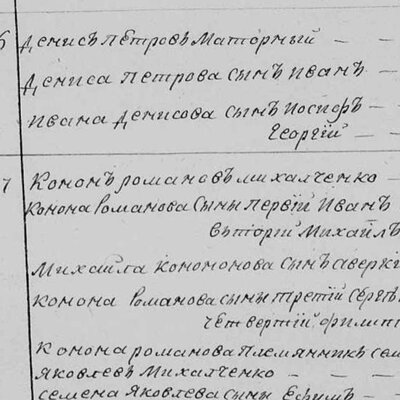 6 Денисъ Петровъ Маторный — —
Дениса Петрова сынъ Иванъ —
Ивана Денисова сынъ Иосифъ —
Георгий —
7 Кононъ Романовъ Михалченко —
Конона Романова сыны первій Иванъ
вьторій Михайлъ
Михайла Кономонова сынъ Аверкі
Конона Романова сыны третій Сергѣ
Четвертій Филип
Конона Романова племянникъ Сем
Яковлевъ Михалченко — — —
Семена Яковлева сыны Ефимъ —